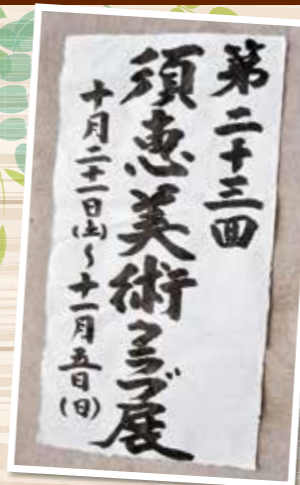 第二十三回
須恵美術クラブ展
十月二十一日(土)〜十一月五日(日)